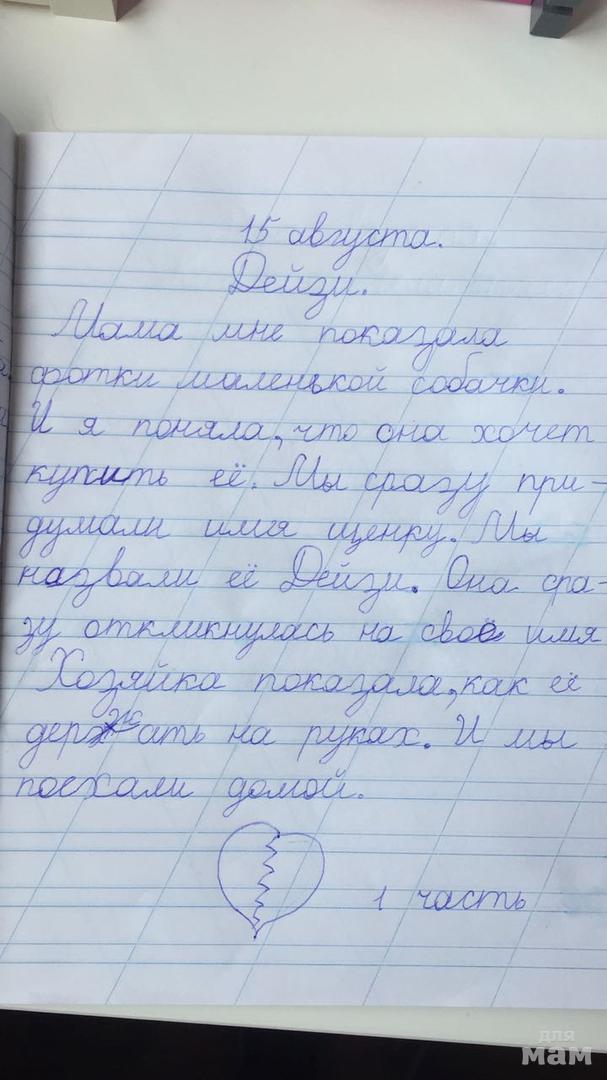 15 августа.
Дейзи.
Мама мне показала
фотки маленькой собачки.
И я поняла, что она хочет
купить её. Мы сразу при-
думали имя щенку. Мы
назвали её Дейзи. Она сра-
зу откликнулась на своё имя
Хозяйка показала, как её
держать на руках. И мы
поехали домой.
1 часть
для
мам